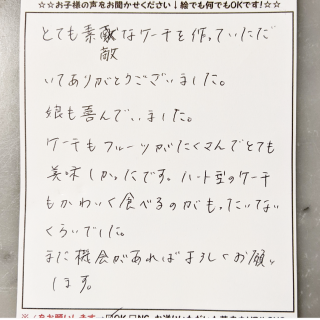 ☆☆お子様の声をお聞かせください↓絵でも何でもOKです!☆☆
とても素敵なケーキを作っていただ
敵
いてありがとうございました。
娘も喜んでいました。
ケーキもフルーツがたくさんでとても
美味しかったです。ハート型のケーキ
もかわいく食べるのがもったいない
くらいでした。
また機会があればよろしくお願い
します。